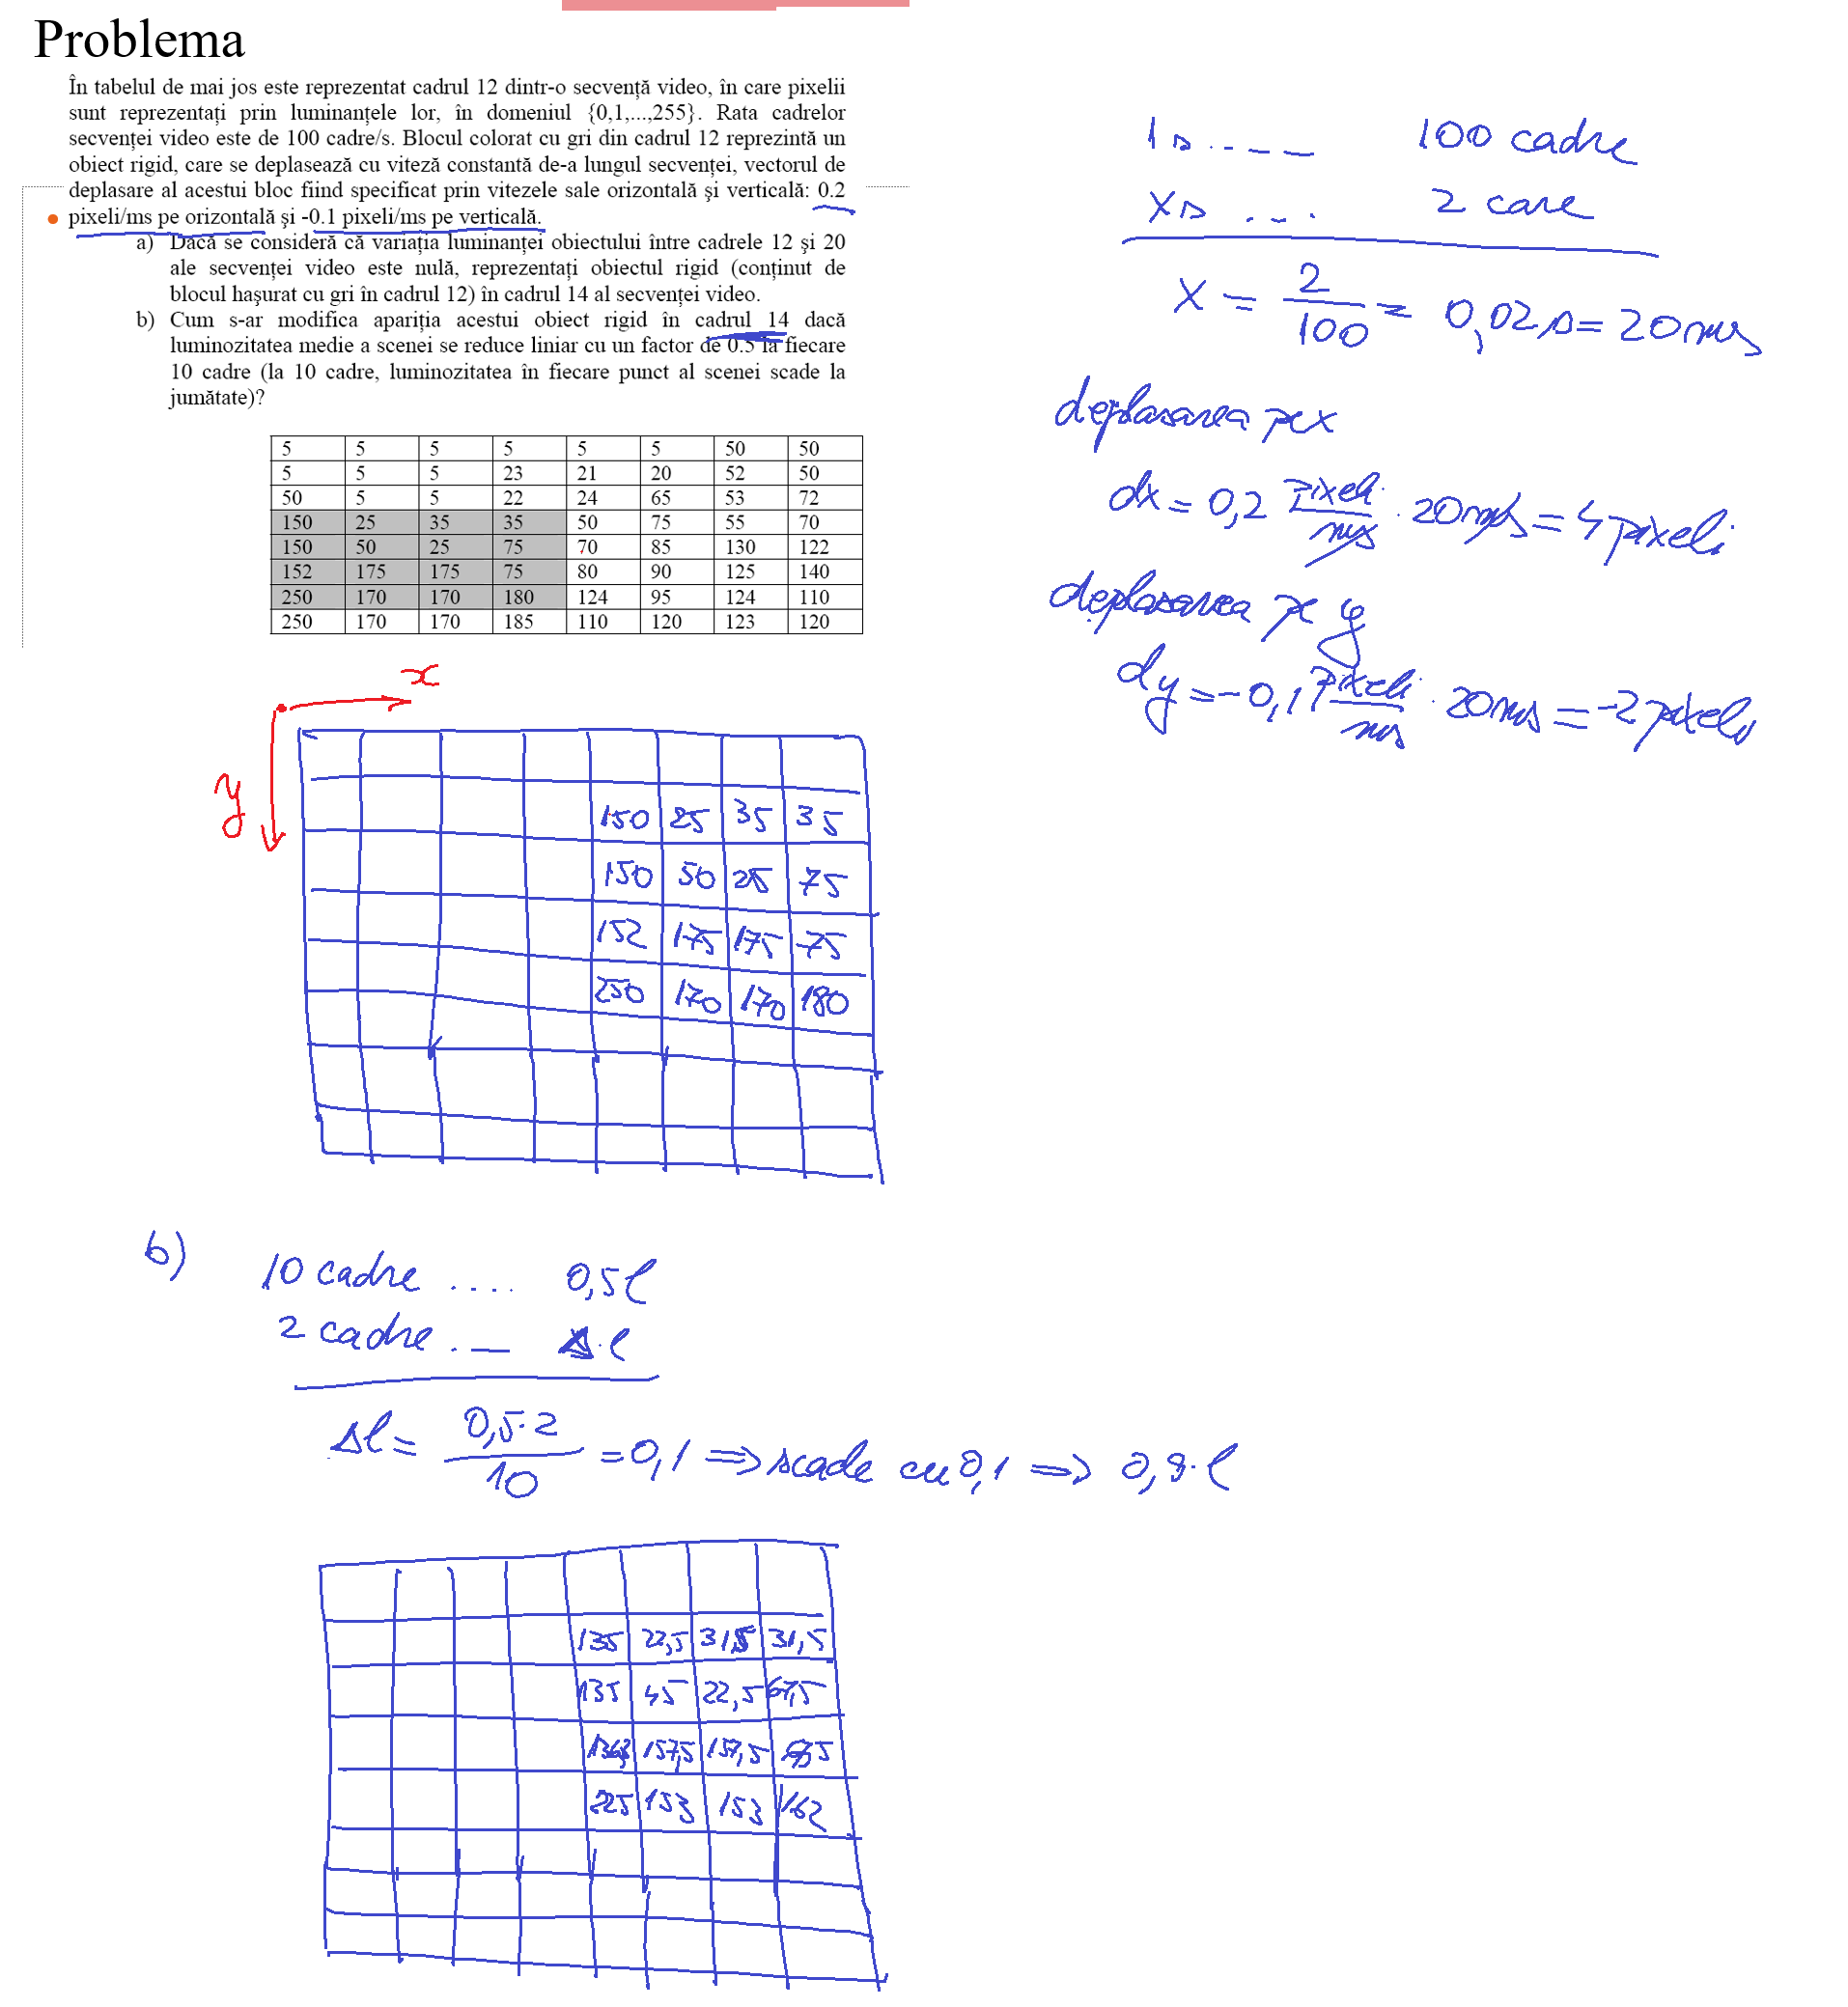 Problema
În tabelul de mai jos este reprezentat cadrul 12 dintr-o secvență video, în care pixelii
sunt reprezentați prin luminanțele lor, în domeniul {0,1,...,255}. Rata cadrelor
secvenței video este de 100 cadre/s. Blocul colorat cu gri din cadrul 12 reprezintă un
obiect rigid, care se deplasează cu viteză constantă de-a lungul secvenței, vectorul de
deplasare al acestui bloc fiind specificat prin vitezele sale orizontală şi verticală: 0.2
pixeli/ms pe orizontală şi -0.1 pixeli/ms pe verticală.
a) Dacă se consideră că variația luminanței obiectului între cadrele 12 şi 20
ale secvenței video este nulă, reprezentați obiectul rigid (conținut de
blocul haşurat cu gri în cadrul 12) în cadrul 14 al secvenței video.
b) Cum s-ar modifica apariția acestui obiect rigid în cadrul 14 dacă
luminozitatea medie a scenei se reduce liniar cu un factor de 0.5 la fiecare
10 cadre (la 10 cadre, luminozitatea în fiecare punct al scenei scade la
jumătate)?
5 5 5 5 5 5 50 50
5 5 5 23 21 20 52 50
50 5 5 22 24 65 53 72
150 25 35 35 50 75 55 70
150 50 25 75 70 85 130 122
152 175 175 75 80 90 125 140
250 170 170 180 124 95 124 110
250 170 170 185 110 120 123 120
1s .--- 100 cadre
xs ... 2 care
x = 2/100 = 0,02s = 20ms
deplasarea pe x
dx = 0,2 pixeli/ms · 20ms = 4 pixeli
deplasarea pe y
dy = -0,1 pixeli/ms · 20ms = -2 pixeli
x
y
150 25 35 35
150 50 25 75
152 175 175 75
250 170 170 180
b)
10 cadre .... 0,5l
2 cadre .-- Δ·l
Δl = 0,5·2/10 = 0,1 => scade cu 0,1 => 0,9·l
135 22,5 31,5 31,5
135 45 22,5 67,5
157,5 157,5
225 153 153 162